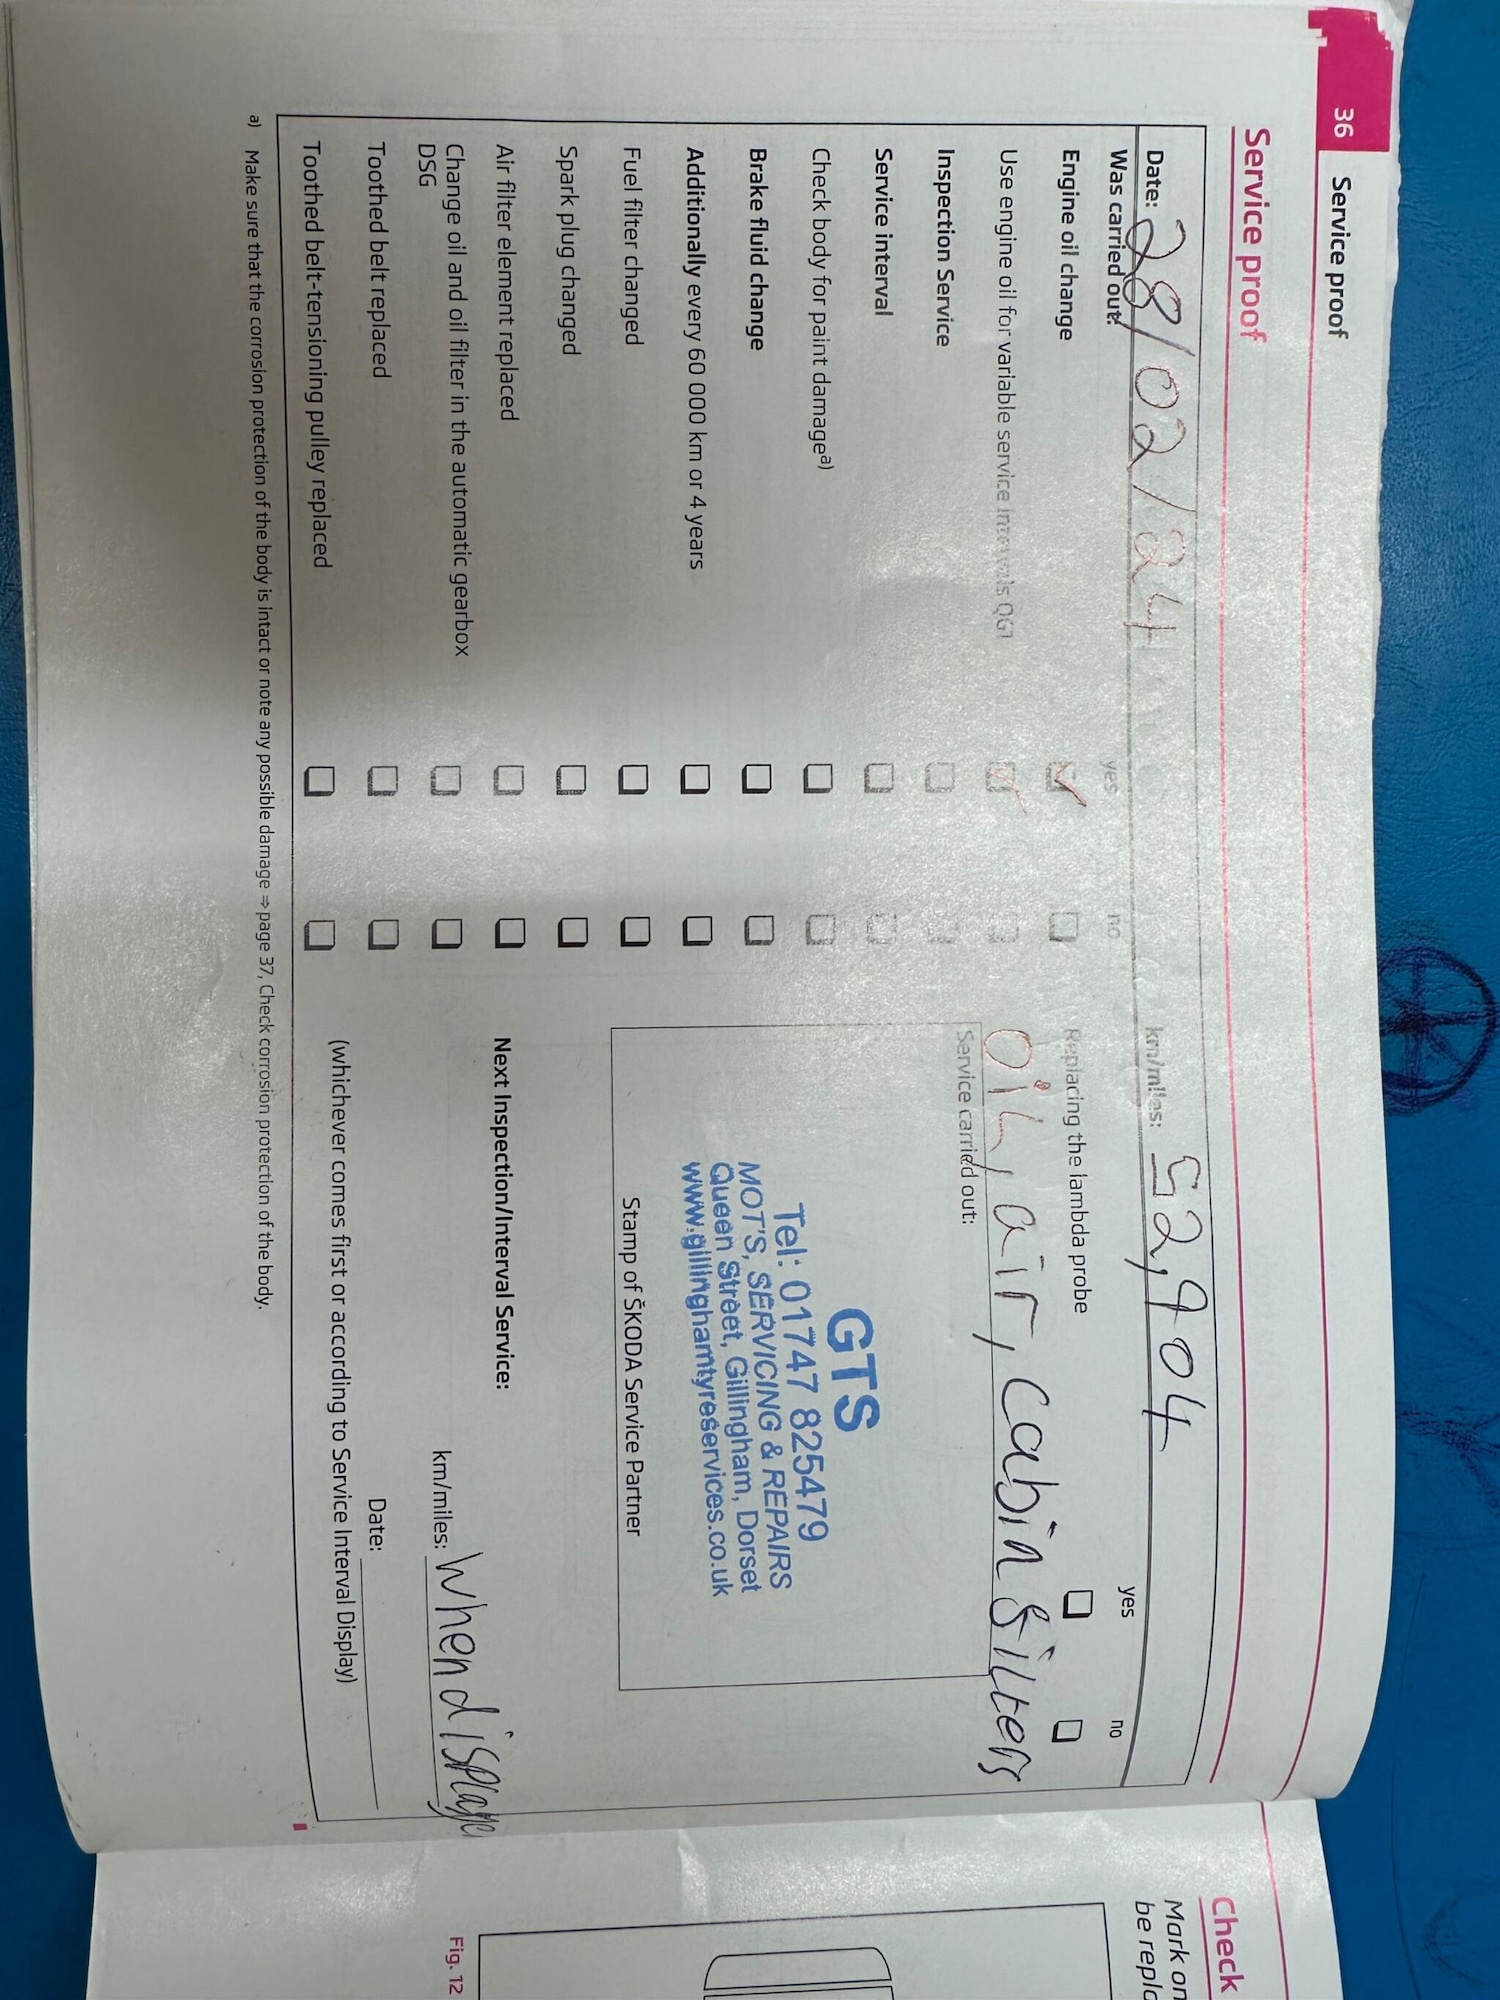 36 Service proof
Service proof
Date: 28/02/24 km/miles: 52,904
Was carried out: yes no yes no
Engine oil change Replacing the lambda probe
Use engine oil for variable service intervals QG1 Oil, air, cabin filters
Inspection Service Service carried out:
Service interval
Check body for paint damage a)
Brake fluid change
Additionally every 60 000 km or 4 years
Fuel filter changed
Spark plug changed
Air filter element replaced
Change oil and oil filter in the automatic gearbox
DSG
Toothed belt replaced
Toothed belt-tensioning pulley replaced
GTS
Tel: 01747 825479
MOT'S, SERVICING & REPAIRS
Queen Street, Gillingham, Dorset
www.gillinghamtyreservices.co.uk
Stamp of ŠKODA Service Partner
Next Inspection/Interval Service:
km/miles: When display
Date:
(whichever comes first or according to Service Interval Display)
a) Make sure that the corrosion protection of the body is intact or note any possible damage ⇒ page 37, Check corrosion protection of the body.
Check
Mark on
be repla
Fig. 12